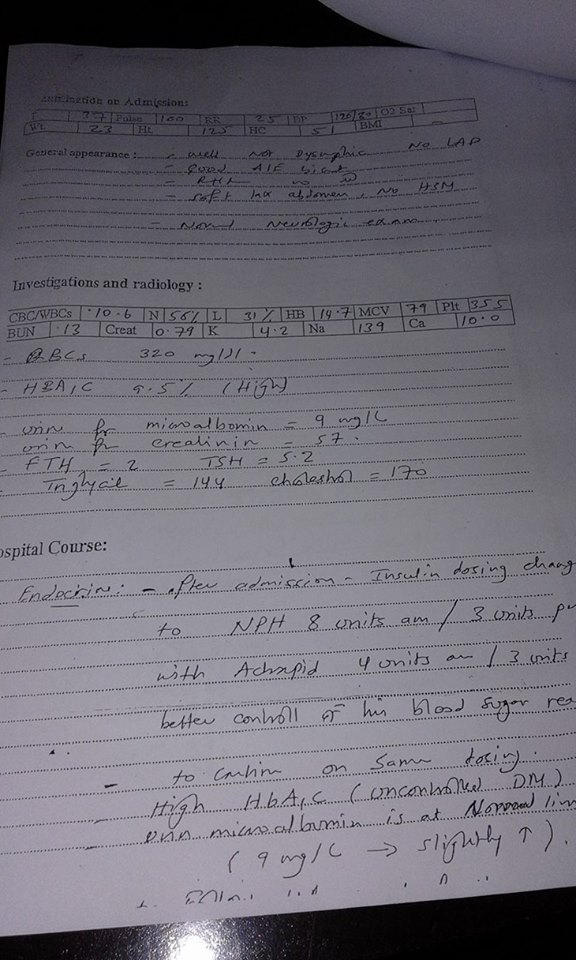 Examination on Admission:
37 Pulse 100 RR 25 BP 120/80 O2 Sat
Wt. 23 Ht. 125 HC 51 BMI
General appearance : - well Not Dysmorphic No LAP
- Good A/E
- soft lax abdomen, No HSM
- Normal Neurologic exam
Investigations and radiology :
CBC/WBCs 10.6 N 56% L 31% HB 14.7 MCV 79 Plt 355
BUN 13 Creat 0.79 K 4.2 Na 139 Ca 10.0
- RBCs 320 mg/dl.
- HBA1C 9.5% (High)
- urin for microalbomin = 9 mg/L
urin for creatinin = 57.
- FTH = 2 TSH = 5.2
- Triglycie = 144 cholestrol = 170
ospital Course:
Endocrine: - After admission - Insulin dosing chang
to NPH 8 units am / 3 units p
with Actrapid 4 units am / 3 units
better controll of his blood sugar rea
- to continue on same dosing.
- High HbA1C (uncontrolled DM)
- urin microalbumin is at Normal lim
( 9 mg/L → slightly ↑ ).